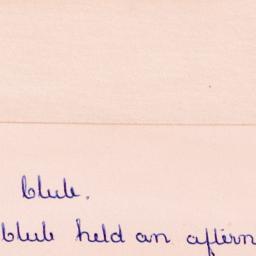 Club.
Club held an aftern